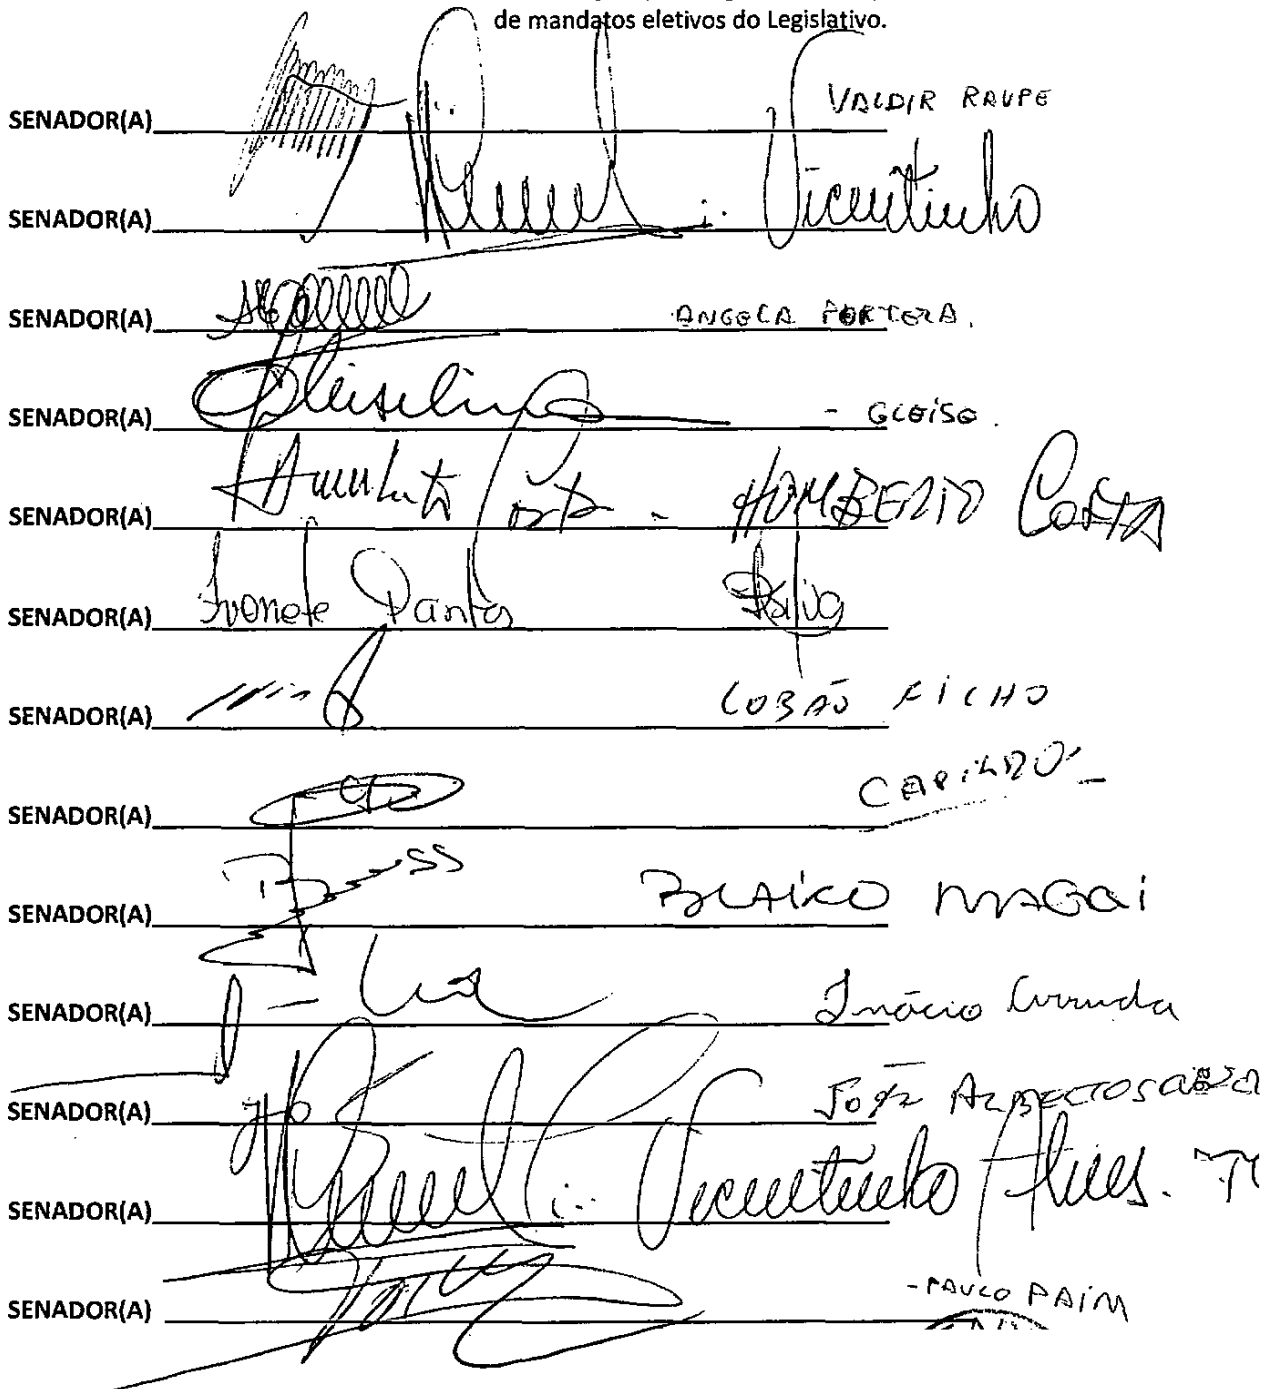 de mandatos eletivos do Legislativo.
SENADOR(A) VALDIR RAUPE
SENADOR(A) Vicentinho
SENADOR(A) ANGELA PORTELA.
SENADOR(A) - GLEISE.
SENADOR(A) Humberto Costa - HUMBERTO COSTA
SENADOR(A) Ivonete Dantas Silva
SENADOR(A) LOBÃO FILHO
SENADOR(A)
SENADOR(A) BLAIRO MAGGI
SENADOR(A) Inácio Arruda
SENADOR(A) JOÃO ALBERTO SOUZA
SENADOR(A) Vicentinho Alves.
SENADOR(A) - PAULO PAIM